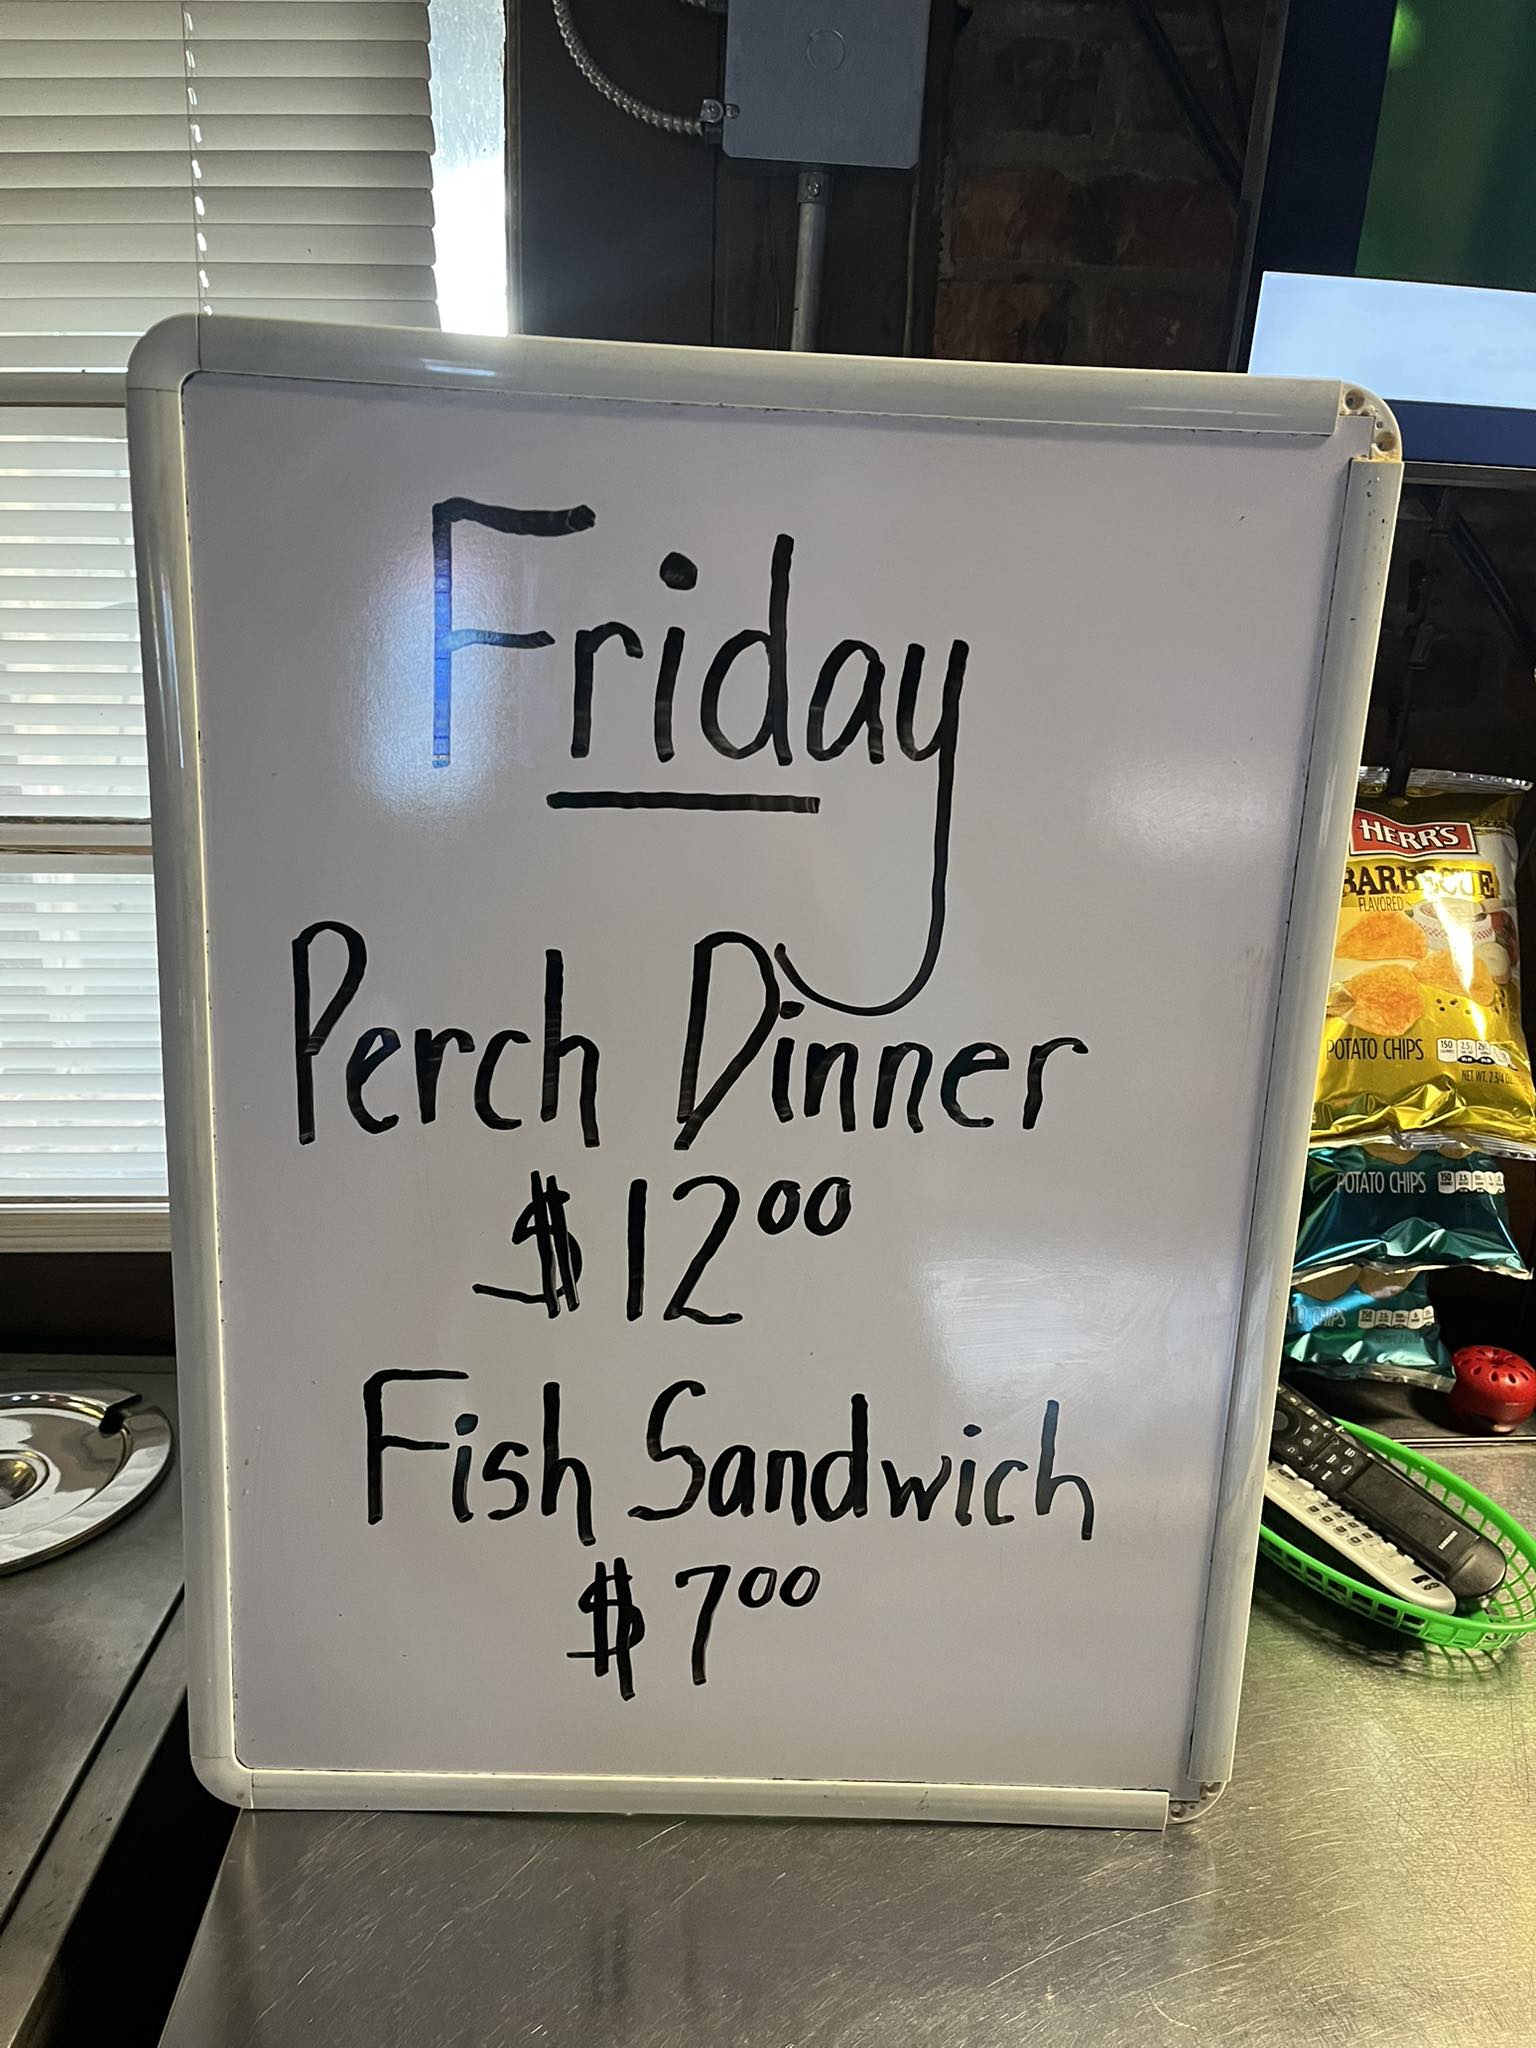 Friday
Perch Dinner
$12.00
Fish Sandwich
$7.00
HERR'S
BARBECUE
FLAVORED
POTATO CHIPS
NET WT. 2 3/4 OZ
POTATO CHIPS
CHIPS